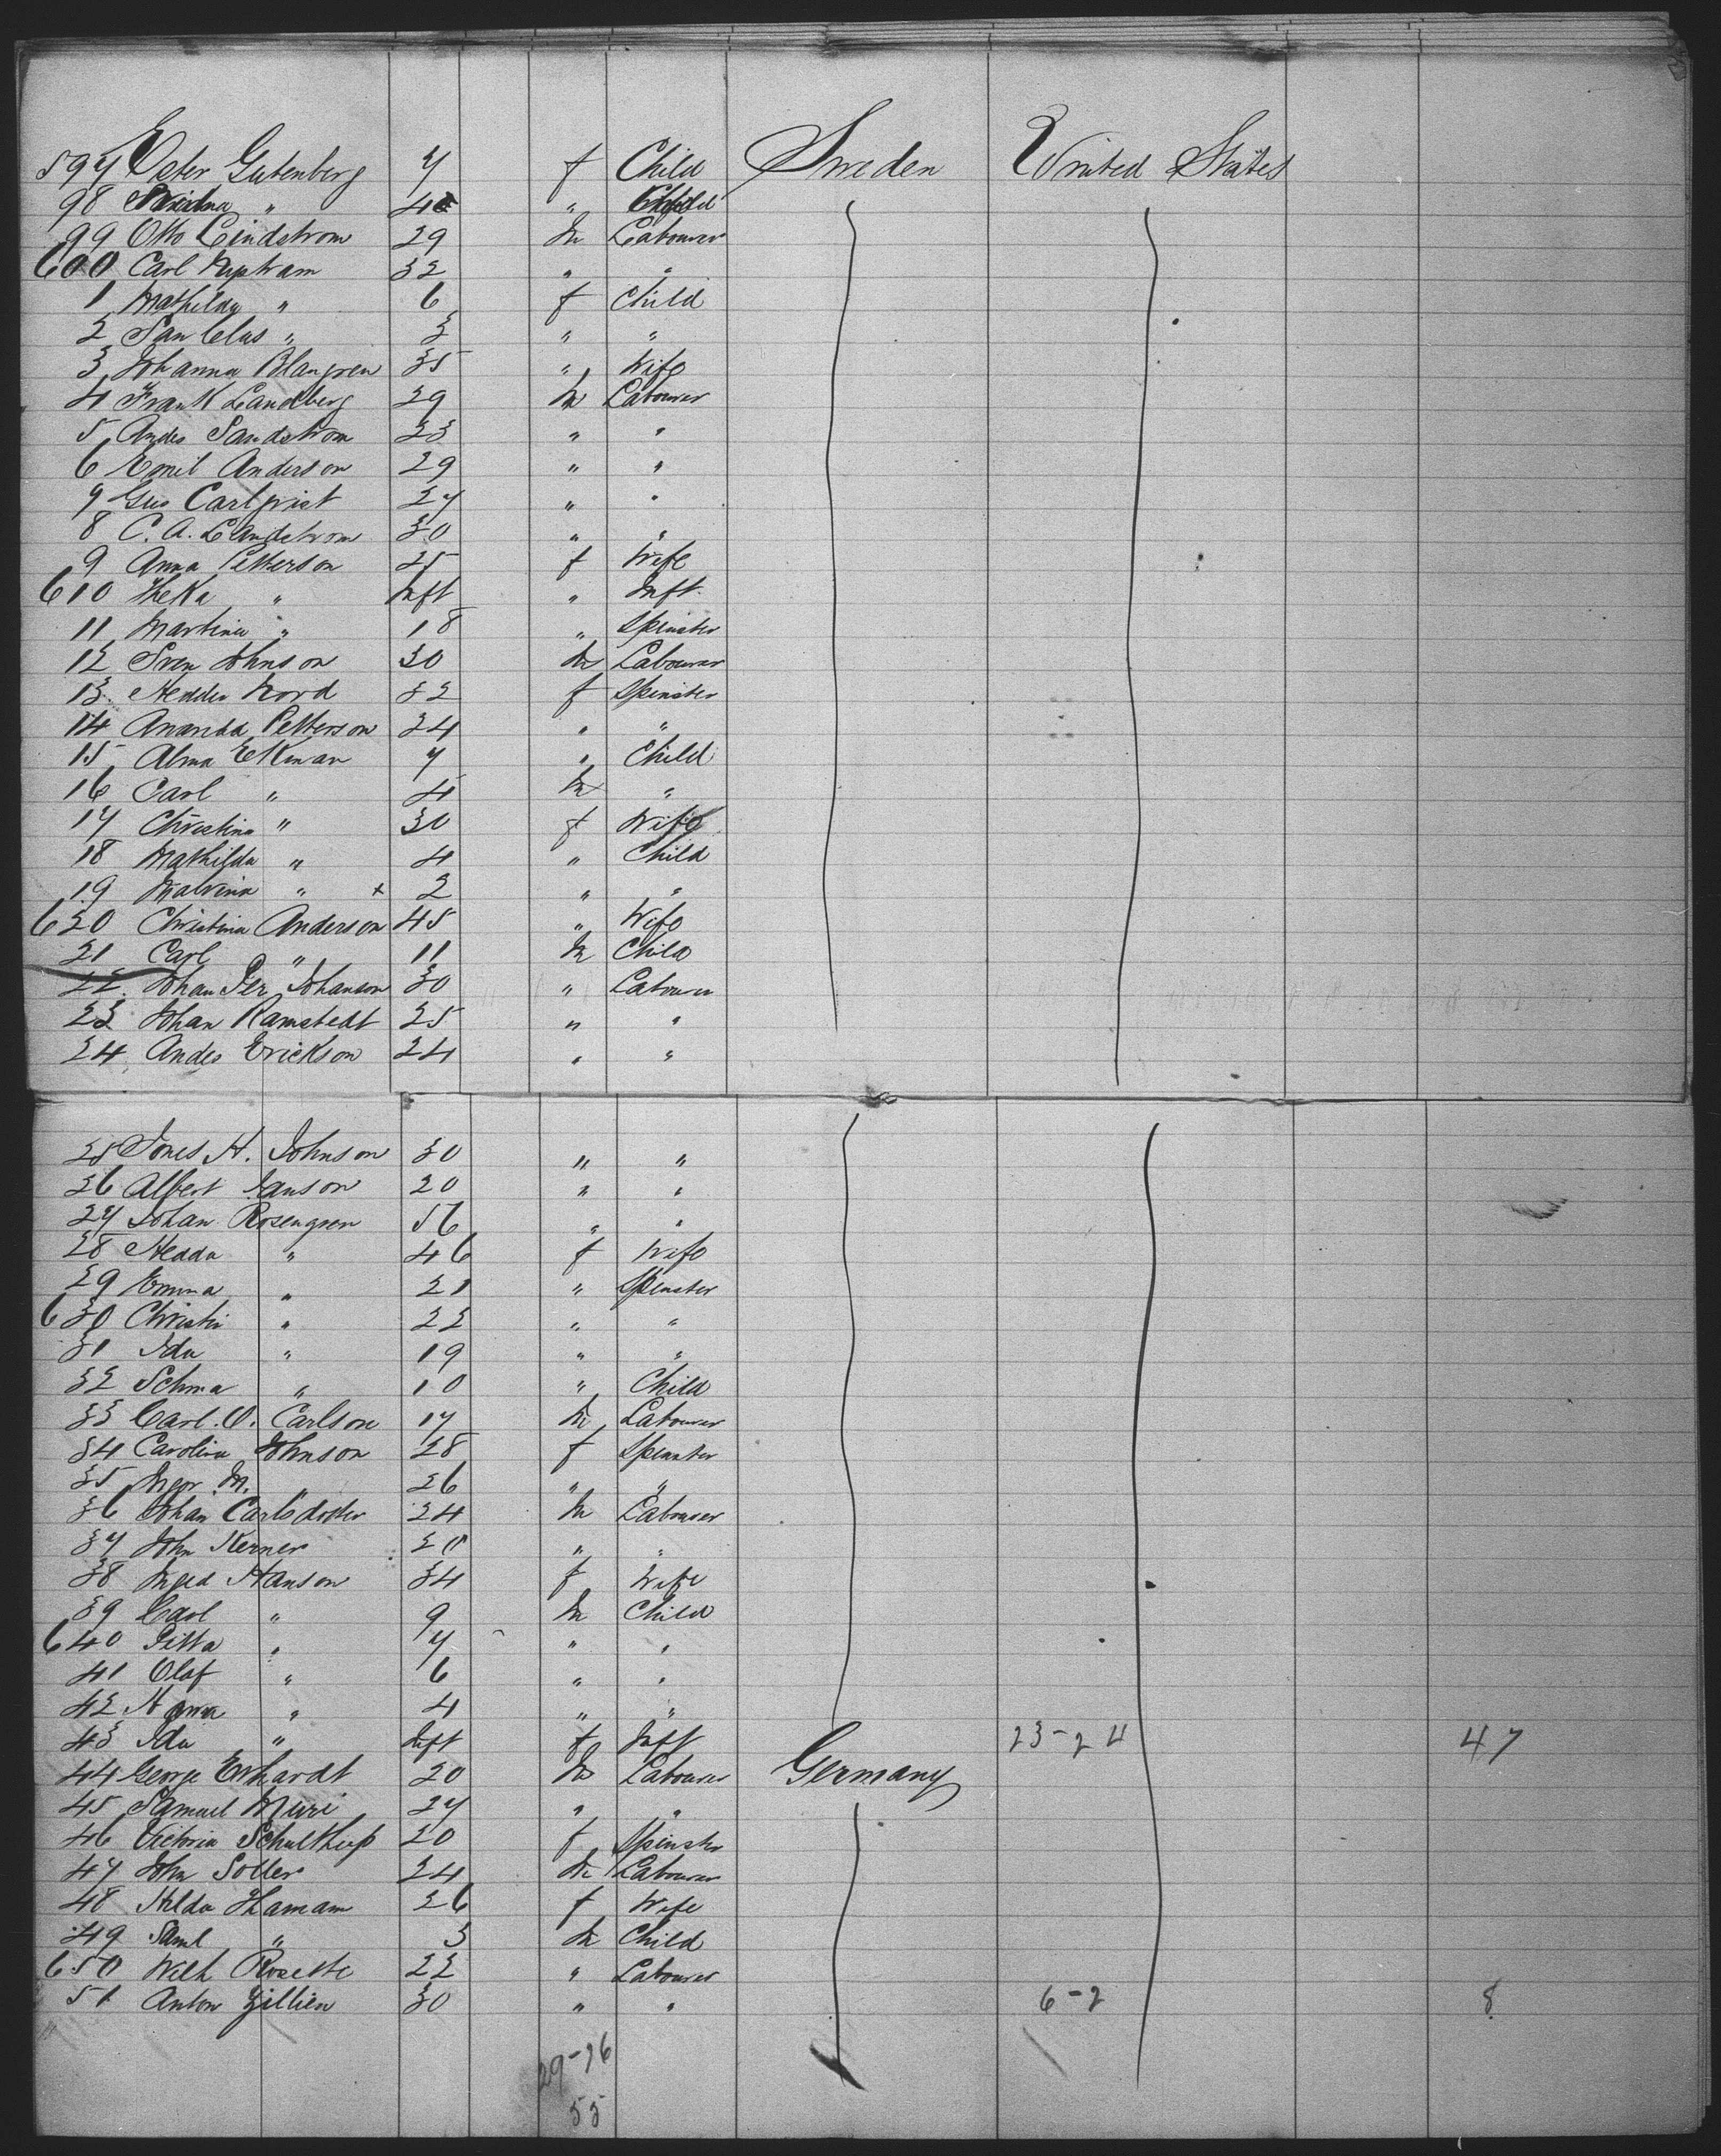 597 Ester Gutenberg 7 f Child Sweden United States
98 " 4 " Child
99 Otto Lindstrom 29 m Labourer
600 Carl 32 " "
1 Mathilda " 6 f Child
2 " 3 " "
3 Johanna Blangren 35 " Wife
4 Frank Landberg 29 m Labourer
5 Andes Sandstrom 23 " "
6 Emil Anderson 29 " "
7 Gus Carlqvist 27 " "
8 C. A. Landstrom 30 " "
9 Anna Petterson 25 f Wife
610 Heka " Inft " Inft.
11 Martina " 18 " Spinster
12 Sven Johnson 30 m Labourer
13 Hedda Nord 32 f Spinster
14 Amanda Petterson 24 " "
15 Alma Ekman 7 " Child
16 Carl " 4 m "
17 Christina " 30 f Wife
18 Mathilda " 4 " Child
19 Malvina " x 2 " "
620 Christina Anderson 45 " Wife
21 Carl " 11 m Child
22 Johan Per Johanson 30 " Labourer
23 Johan Ramstedt 25 " "
24 Andes Erickson 24 " "
25 Jones H. Johnson 30 " "
26 Albert Janson 20 " "
27 Johan Rosengren 56 " "
28 Hedda " 46 f Wife
29 Emma " 21 " Spinster
630 Christi " 22 " "
31 Ida " 19 " "
32 Selma " 10 " Child
33 Carl. O. Carlson 17 m Labourer
34 Carolina Johnson 28 f Spinster
35 M. " 26 " "
36 Johan Carlsdotter 24 m Labourer
37 John Kerner 20 " "
38 Hanson 34 f Wife
39 Carl " 9 m Child
640 Pitta " 7 " "
41 Olof " 6 " "
42 " 4 " "
43 Ida " Inft f Inft 23-24 47
44 George Erhardt 20 m Labourer Germany
45 Samuel Muri 27 " "
46 Victoria 20 f Spinster
47 John Soller 24 m Labourer
48 Hilda Hamam 26 f Wife
49 Saml " 3 m Child
650 Wilh Rosette 22 " Labourer
51 Anton Zillien 30 " " 6-2 8
29-26
55